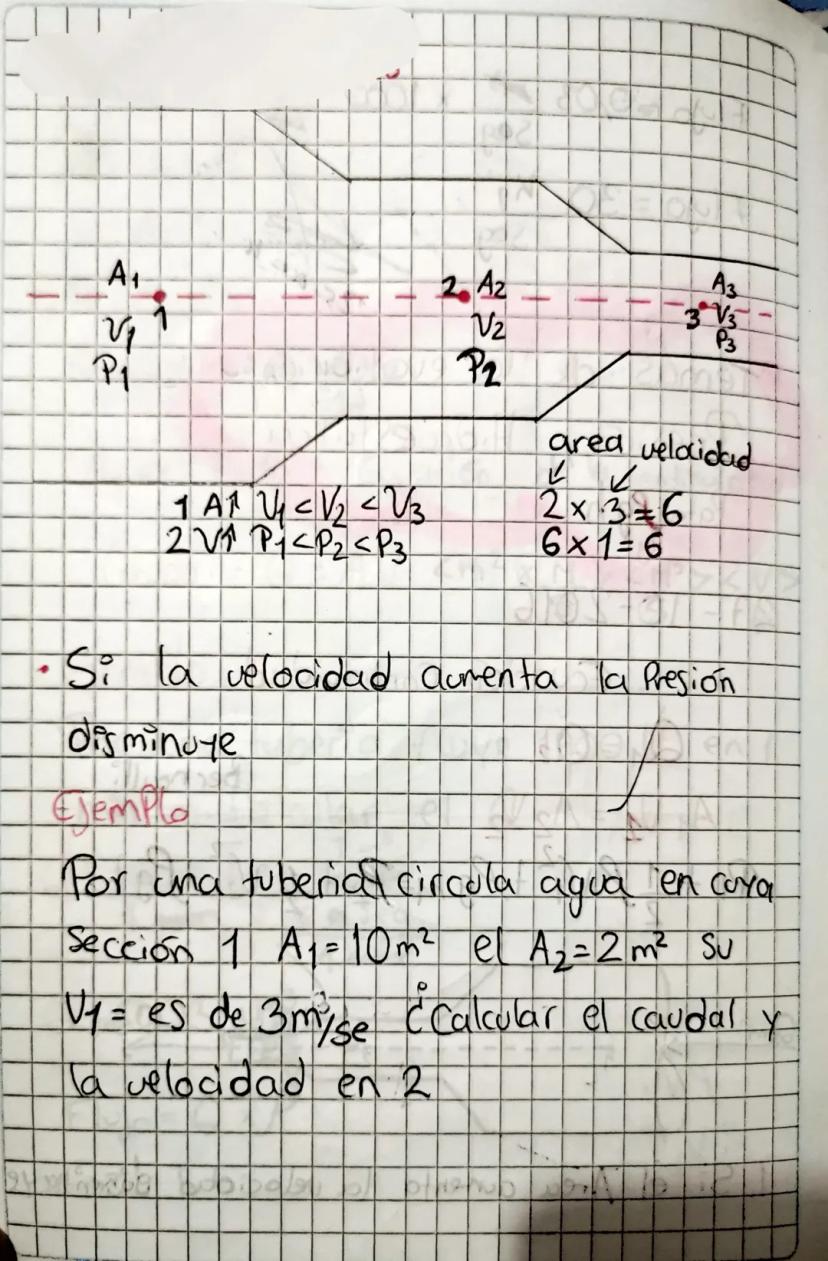 A1
1
V1
P1
2 A2
V2
P2
A3
3 V3
P3
area velocidad
1 A↑ V1 < V2 < V3
2 x 3 = 6
2 V↑ P1 < P2 < P3
6 x 1 = 6
• Si la velocidad aumenta la Presión
disminuye
Ejemplo
Por una tuberia circula agua en cuya
sección 1 A1 = 10 m² el A2 = 2 m² su
V1 = es de 3 m³/se ¿Calcular el caudal y
la velocidad en 2